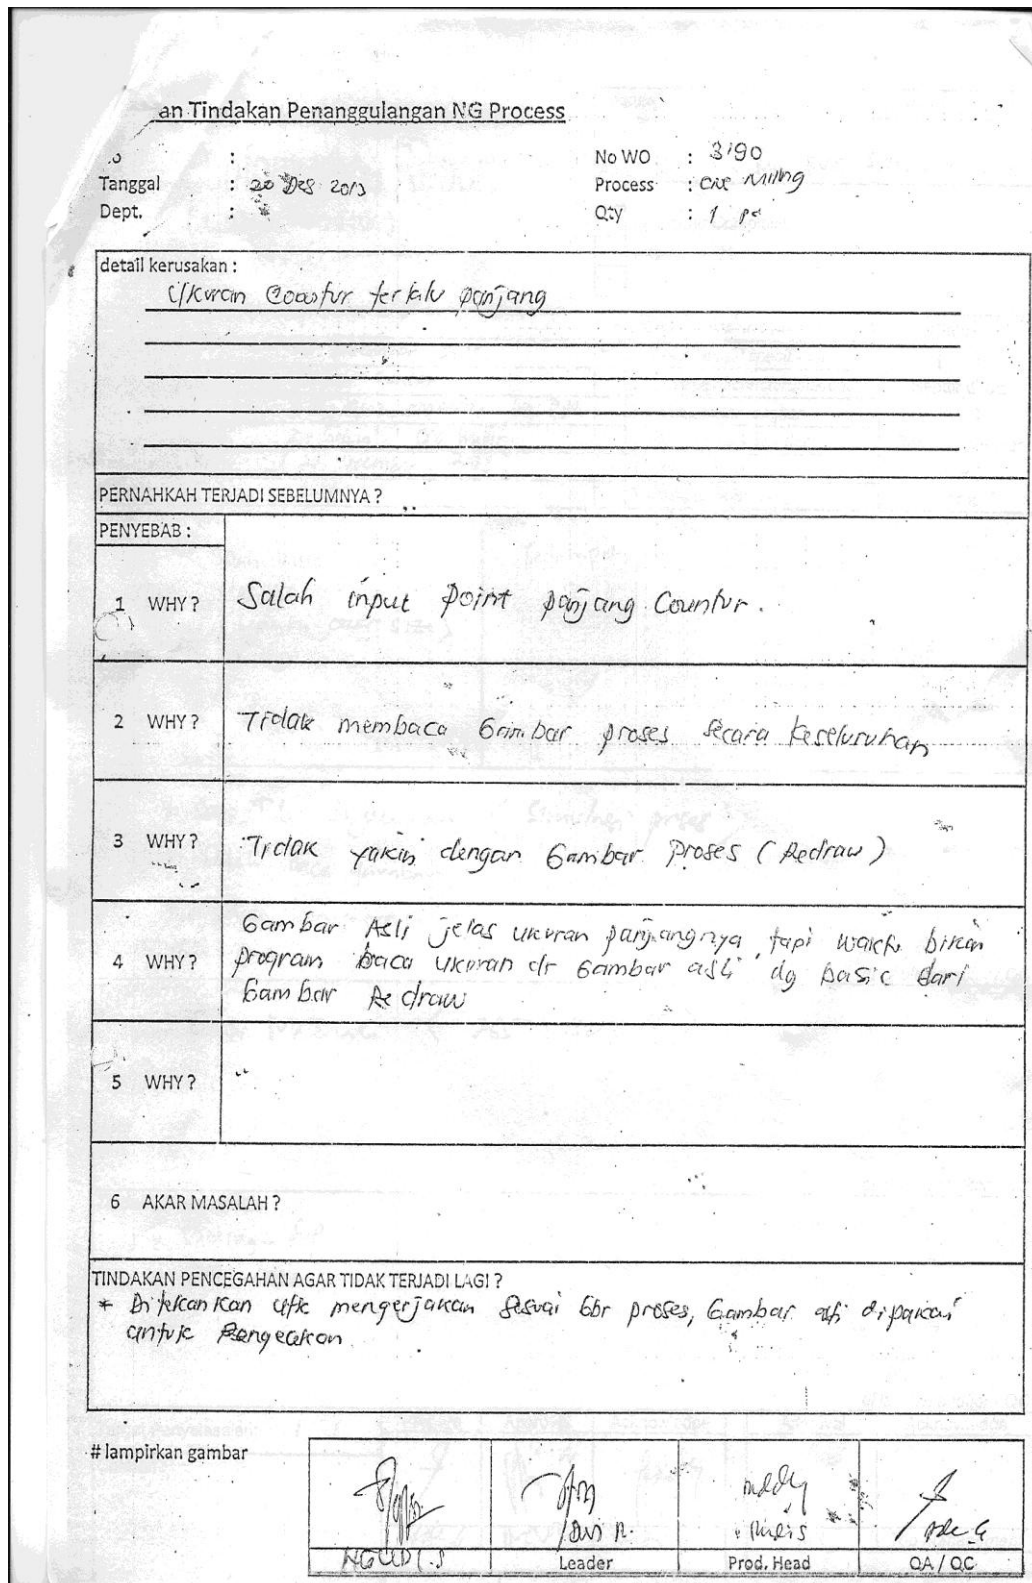 an Tindakan Penanggulangan NG Process
:
No WO : 3190
Tanggal : 20 Des 2013
Process : Milling
Dept. :
Qty : 1
detail kerusakan :
Ukuran terlalu panjang
PERNAHKAH TERJADI SEBELUMNYA ?
PENYEBAB :
1 WHY ? Salah input point panjang Countur.
2 WHY ? Tidak membaca Gambar proses secara keseluruhan
3 WHY ? Tidak yakin dengan Gambar proses (Redraw)
Gambar Asli jelas ukuran panjangnya, tapi waktu bikin
4 WHY ? program baca ukuran dr Gambar asli dg basic dari
Gambar Redraw
5 WHY ?
6 AKAR MASALAH ?
TINDAKAN PENCEGAHAN AGAR TIDAK TERJADI LAGI ?
* Ditekankan utk mengerjakan sesuai Gbr proses, Gambar asli dipakai
untuk Pengecekan
# lampirkan gambar
Leader
Prod. Head
QA / QC